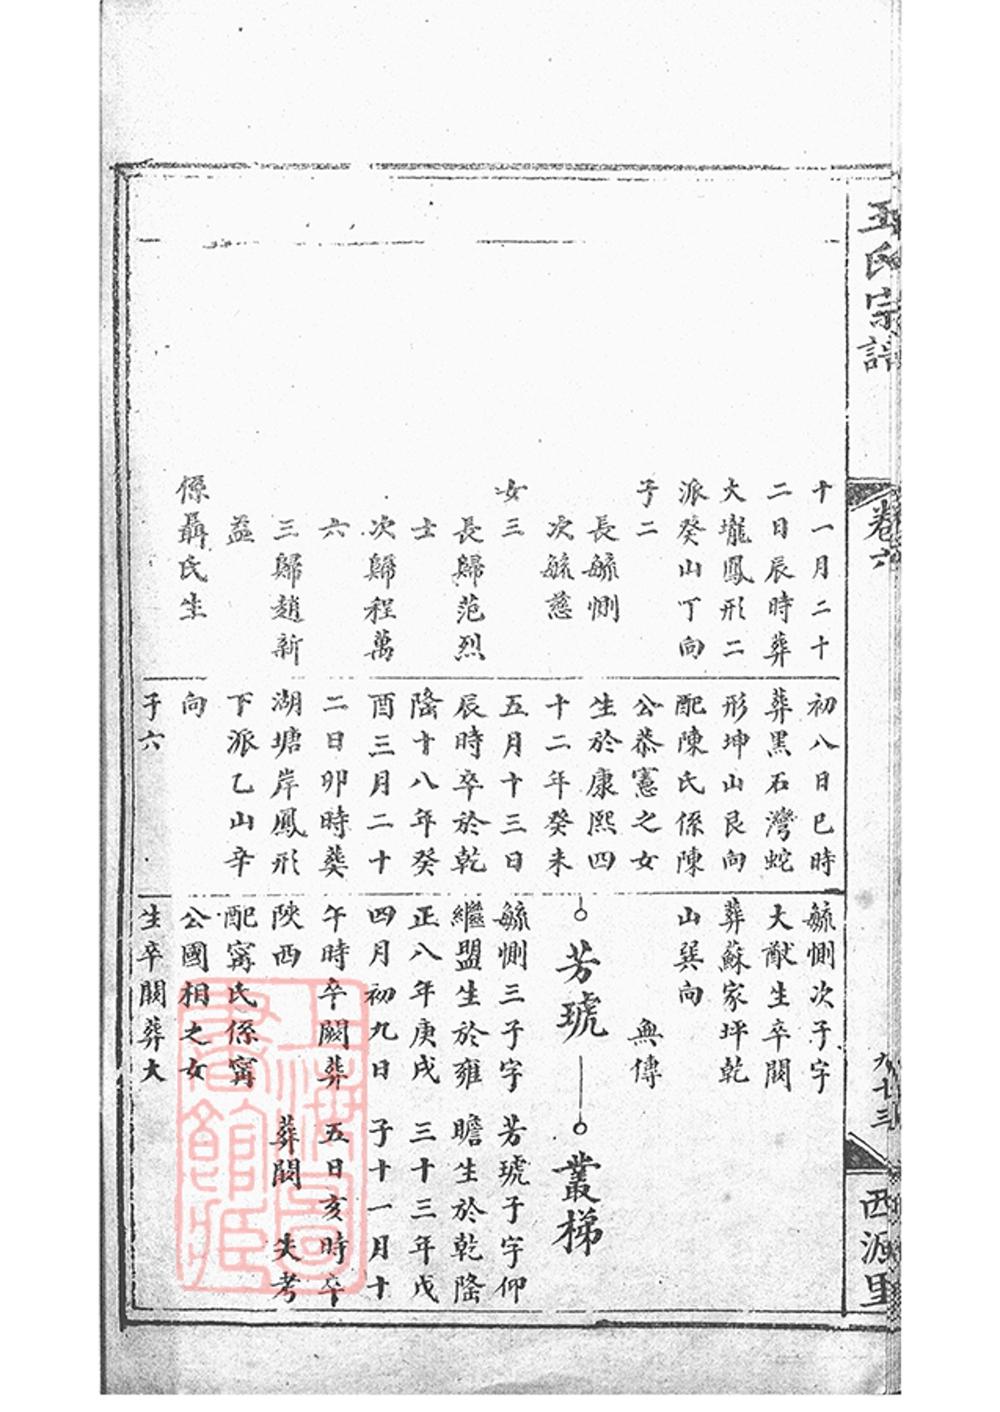 王氏宗譜
卷六
九七三
西源里
十一月二十
二日辰時葬
大壠鳳形二
派癸山丁向
子二
長毓惻
次毓慈
女三
長歸范烈
士
次歸程萬
六
三歸趙新
益
係聶氏生
初八日巳時
葬黑石灣蛇
形坤山艮向
配陳氏係陳
公恭憲之女
生於康熙四
十二年癸未
五月十三日
辰時卒於乾
隆十八年癸
酉三月二十
二日卯時葬
湖塘岸鳳形
下派乙山辛
向
子六
毓惻次子字
大猷生卒闕
葬蘇家坪乾
山巽向
無傳
芳琥
叢梯
毓惻三子字
繼盟生於雍
正八年庚戌
四月初九日
午時卒闕葬
陝西
配甯氏係甯
公國相之女
生卒闕葬大
芳琥子字仰
瞻生於乾隆
三十三年戊
子十一月十
五日亥時卒
葬闕 失考
上海圖書館藏